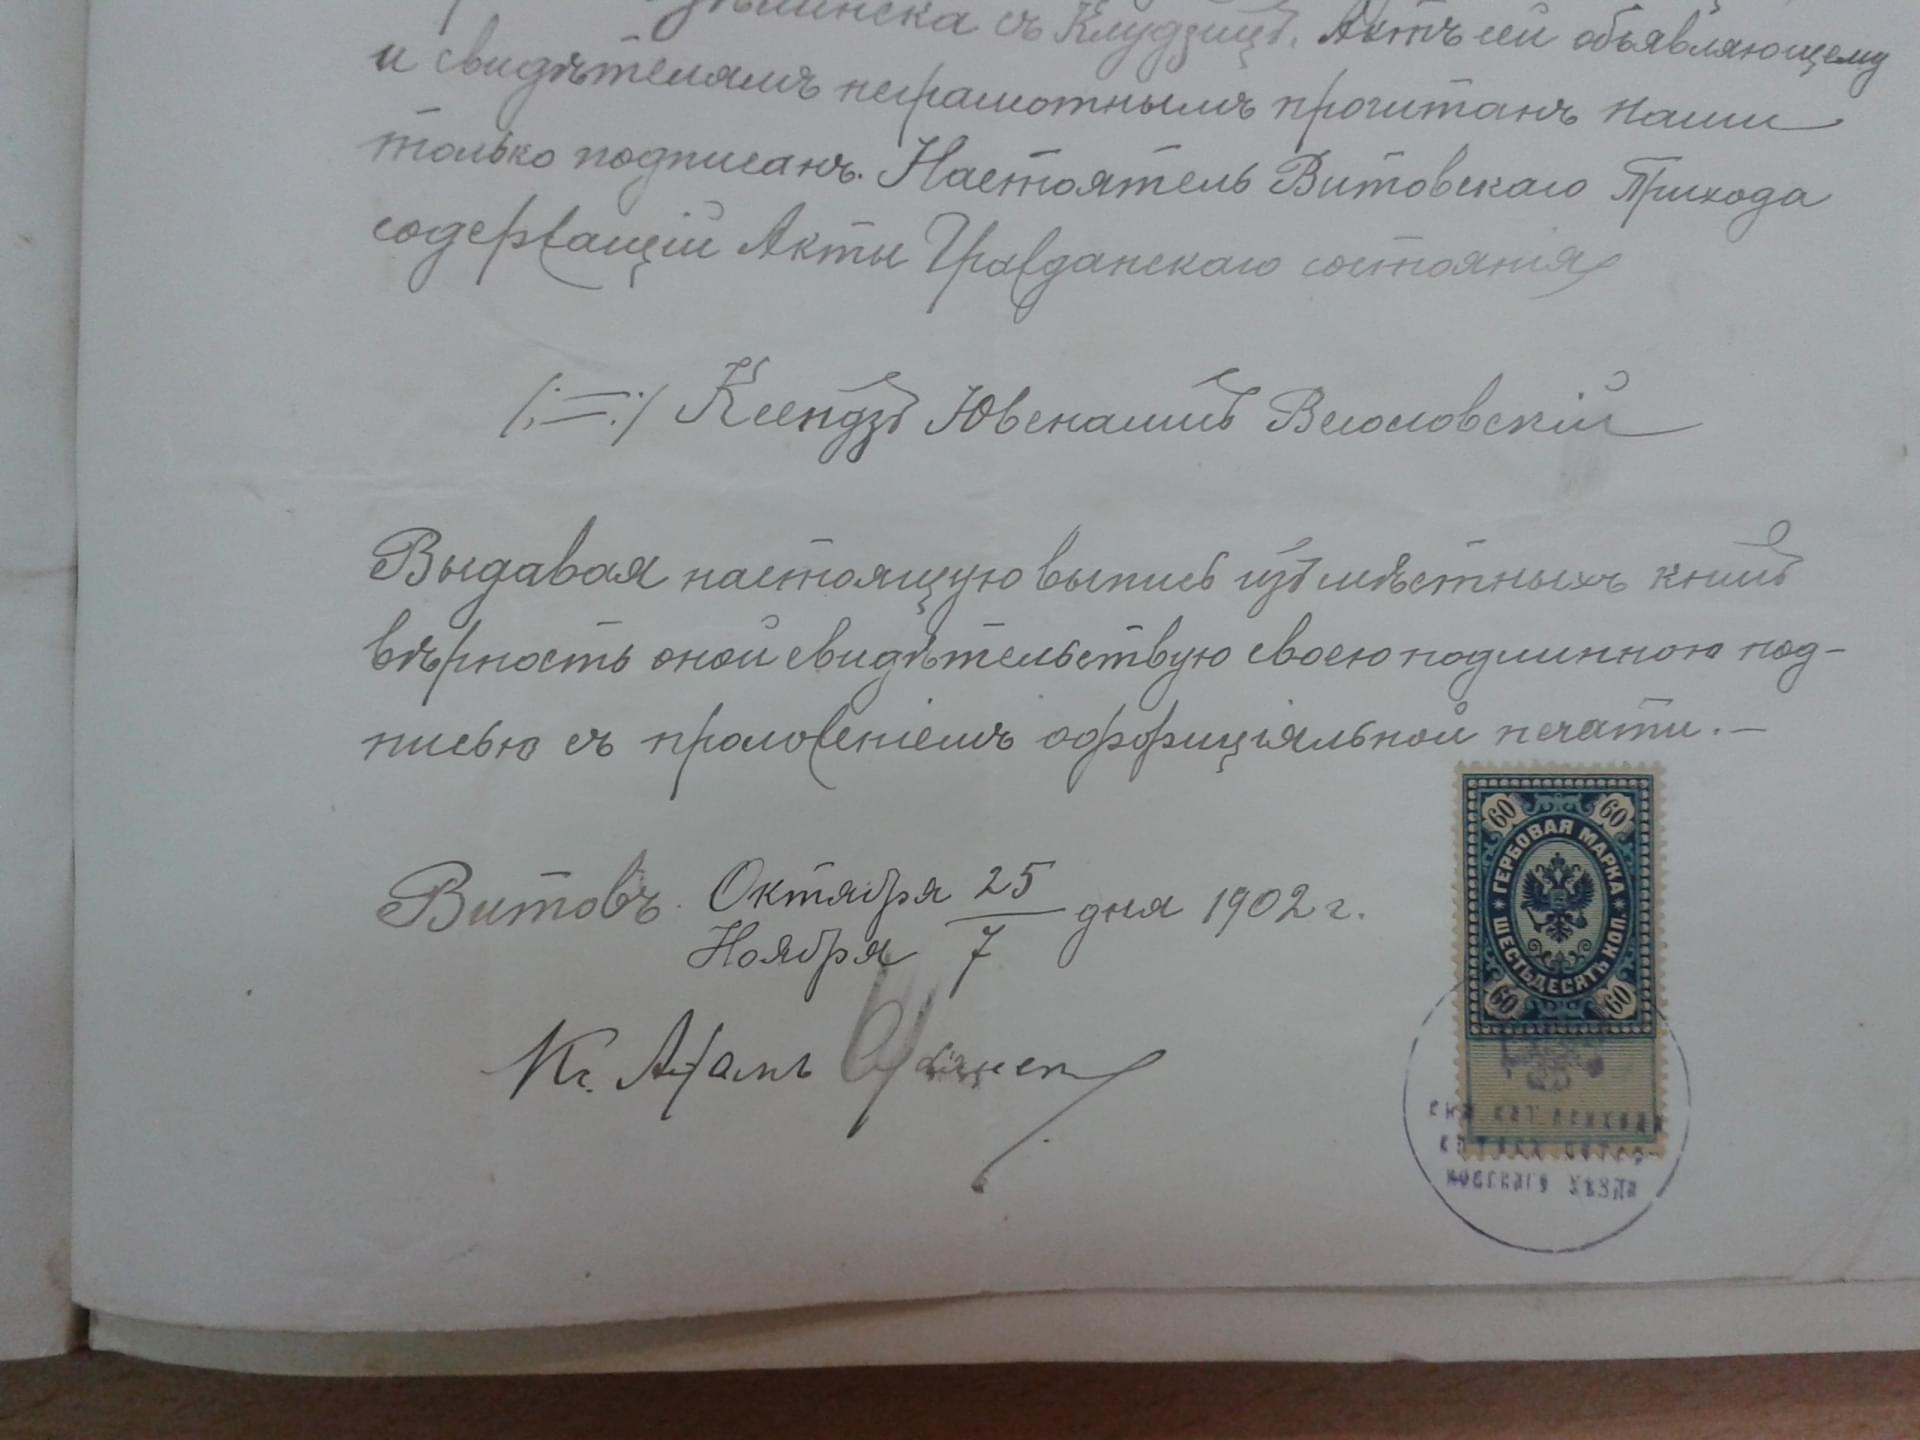 съ Клудзицъ. Актъ сей объявляющему
и свидѣтелямъ неграмотнымъ прочитанъ нами
только подписанъ. Настоятель Витовскаго Прихода
содержащій Акты Гражданскаго состоянія
(:=:) Ксендзъ Ювеналий Веловской
Выдавая настоящую выпись изъ мѣстныхъ книгъ
вѣрность оной свидѣтельствую своею подлинною под-
писью съ приложеніемъ оффиціяльной печати.—
Витовъ. Октября 25
Ноября 7 дня 1902 г.
Кс. Адамъ
60 60
ГЕРБОВАЯ МАРКА
ШЕСТЬДЕСЯТЪ КОП.
60 60
КАТ. ПРИХОДА
ПЕТРО-
КОВСКАГО УѢЗДА